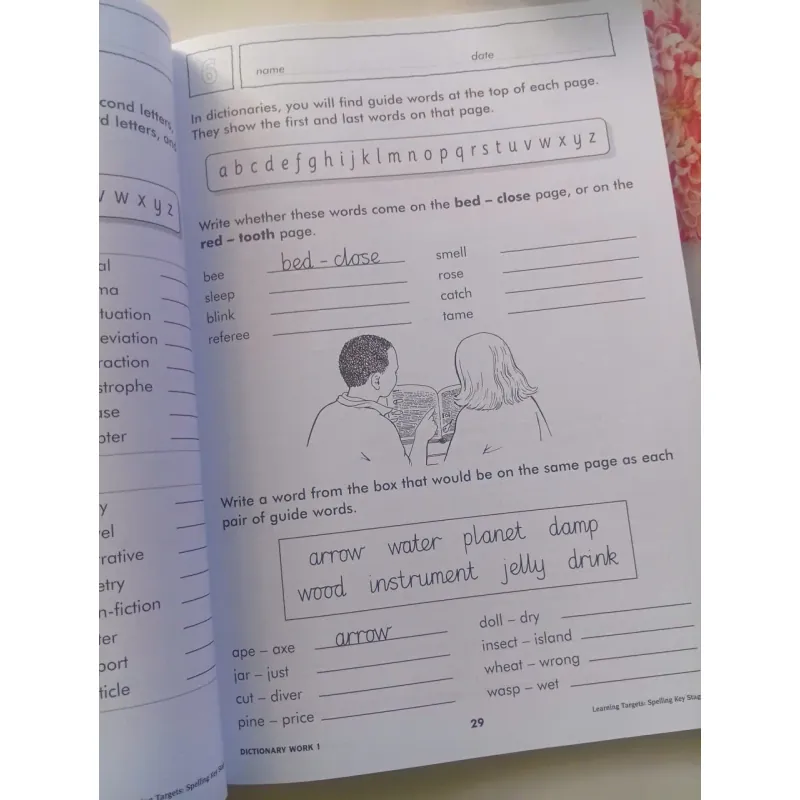 cond letters,
d letters, and
v w x y z
tuation
eviation
raction
strophe
rative
etry
n-fiction
port
ticle
Targets: Spelling Key
6
name
date
In dictionaries, you will find guide words at the top of each page.
They show the first and last words on that page.
a b c d e f g h i j k l m n o p q r s t u v w x y z
Write whether these words come on the bed – close page, or on the
red – tooth page.
bee bed - close smell
sleep rose
blink catch
referee tame
Write a word from the box that would be on the same page as each
pair of guide words.
arrow water planet damp
wood instrument jelly drink
ape – axe arrow doll – dry
jar – just insect – island
cut – diver wheat – wrong
pine – price wasp – wet
Learning Targets: Spelling Key Stag
29
DICTIONARY WORK 1